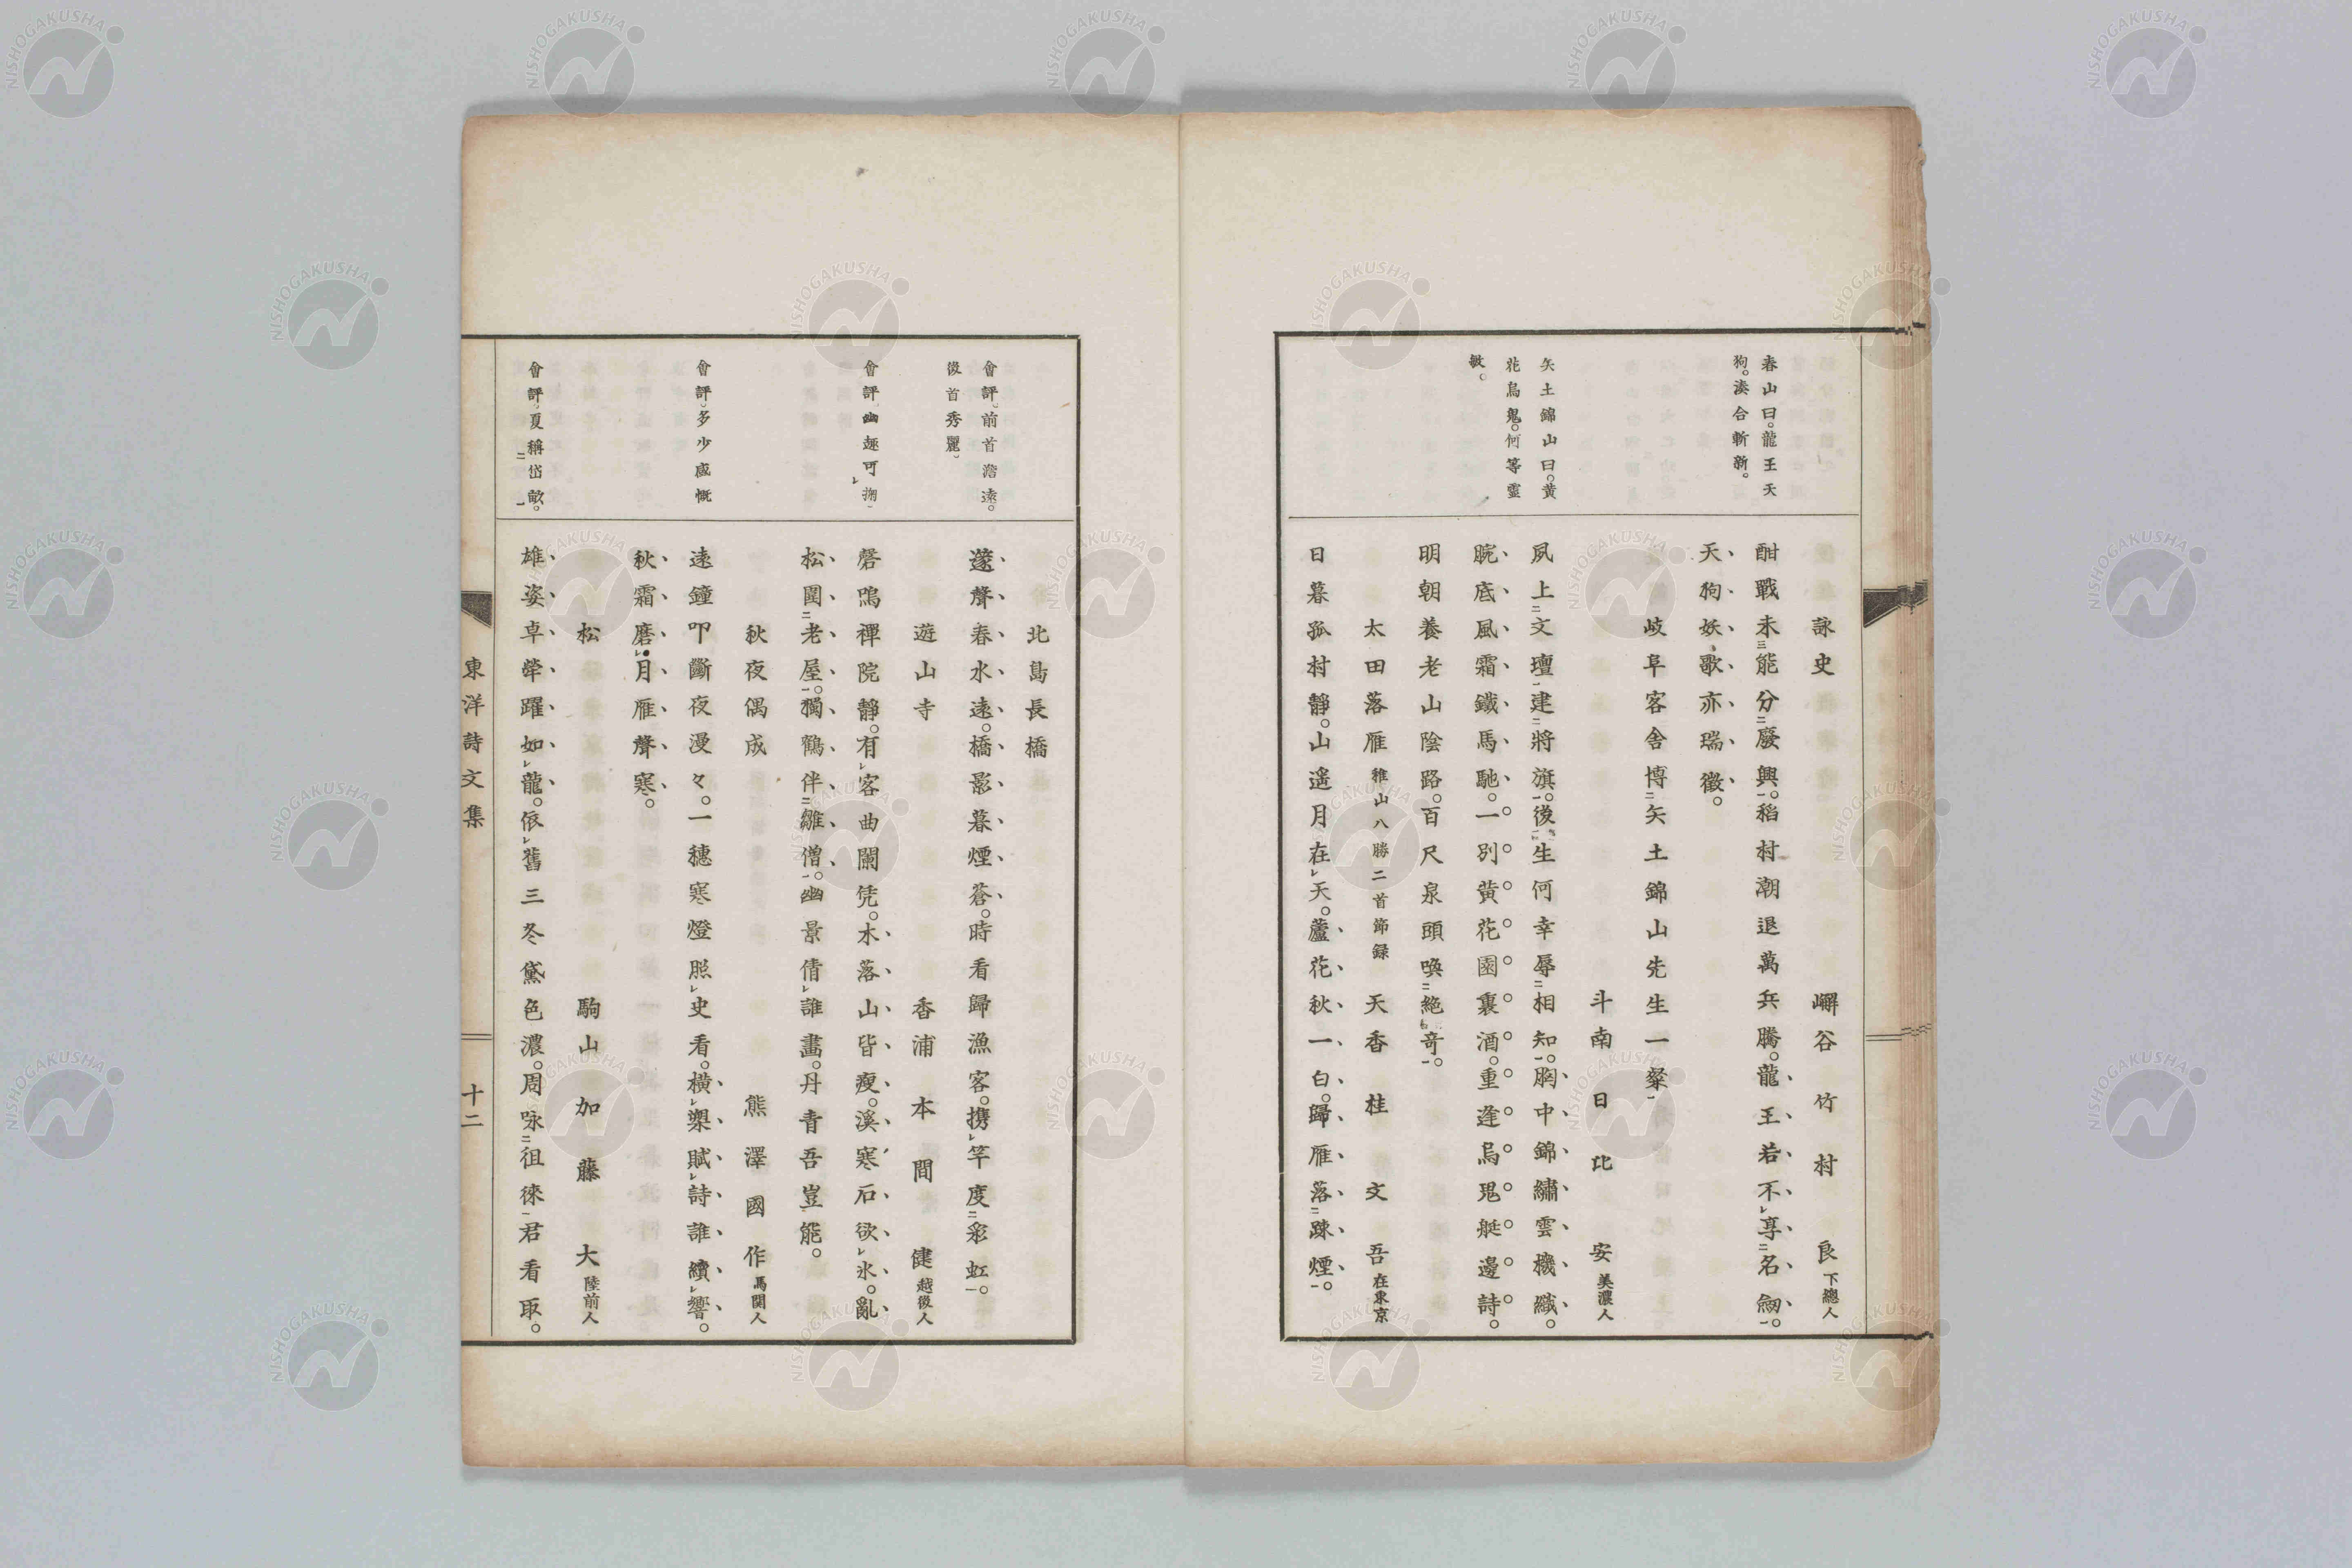 春山曰。龍王天
狗。湊合斬新。
矢土錦山曰。黄
花鳥鬼。何等靈
敏。
詠史 嶰谷 竹村 良 下總人
酣戰未能分廢興。稻村潮退萬兵騰。龍王若不享名劒。
天狗妖歌亦瑞徵。
岐阜客舍博矢土錦山先生一粲
斗南 日比 安 美濃人
夙上文壇建將旗。後生何幸辱相知。胸中錦繡雲機織。
腕底風霜鐵馬馳。一別黄花園裏酒。重逢烏鬼艇邊詩。
明朝養老山陰路。百尺泉頭喚絶奇。
太田落雁 稚山八勝二首節録 天香 桂 文吾 在東京
日暮孤村靜。山遥月在天。蘆花秋一白。歸雁落疎煙。
會評。前首澹遠。
後首秀麗。
會評。幽趣可掬
會評。多少感慨
會評。夏稱岱畝。
北島長橋
邃聲春水遠。橋影暮煙蒼。時看歸漁客。携竿度彩虹。
遊山寺 香浦 本間 健 越後人
磬鳴禪院靜。有客曲闌凭。木落山皆瘦。溪寒石欲氷。亂
松圍老屋。獨鶴伴雛僧。幽景倩誰畫。丹青吾豈能。
秋夜偶成 熊澤國作 馬関人
遠鐘叩斷夜漫々。一穗寒燈照史看。横槊賦詩誰續響。
秋霜磨月雁聲寒。
松 駒山 加藤 大 陸前人
雄姿卓犖躍如龍。依舊三冬黛色濃。周咏徂徠君看取。
東洋詩文集 十二